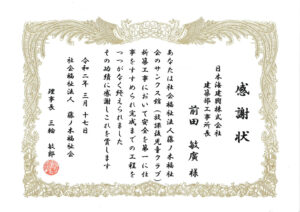 感謝状
日本海建興株式会社
建築部工事所長
前田 敏廣 様
あなたは社会福祉法人藤ノ木福祉
会のサンクス館（放課後児童クラブ）
新築工事において安全を第一に仕
事をすすめられ完成までの工程を
つつがなく終えられました
その功績に感謝しこれを賞します
令和二年 三月 十七日
社会福祉法人 藤ノ木福祉会
理事長 三輪 敏郎